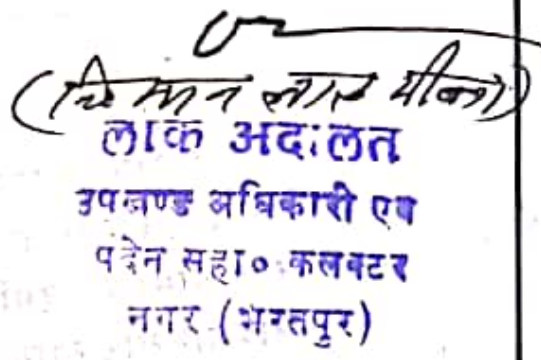 (चिमन लाल मीना)
लाक अदालत
उपखण्ड अधिकारी एव
पदेन सहा० कलक्टर
नगर (भरतपुर)